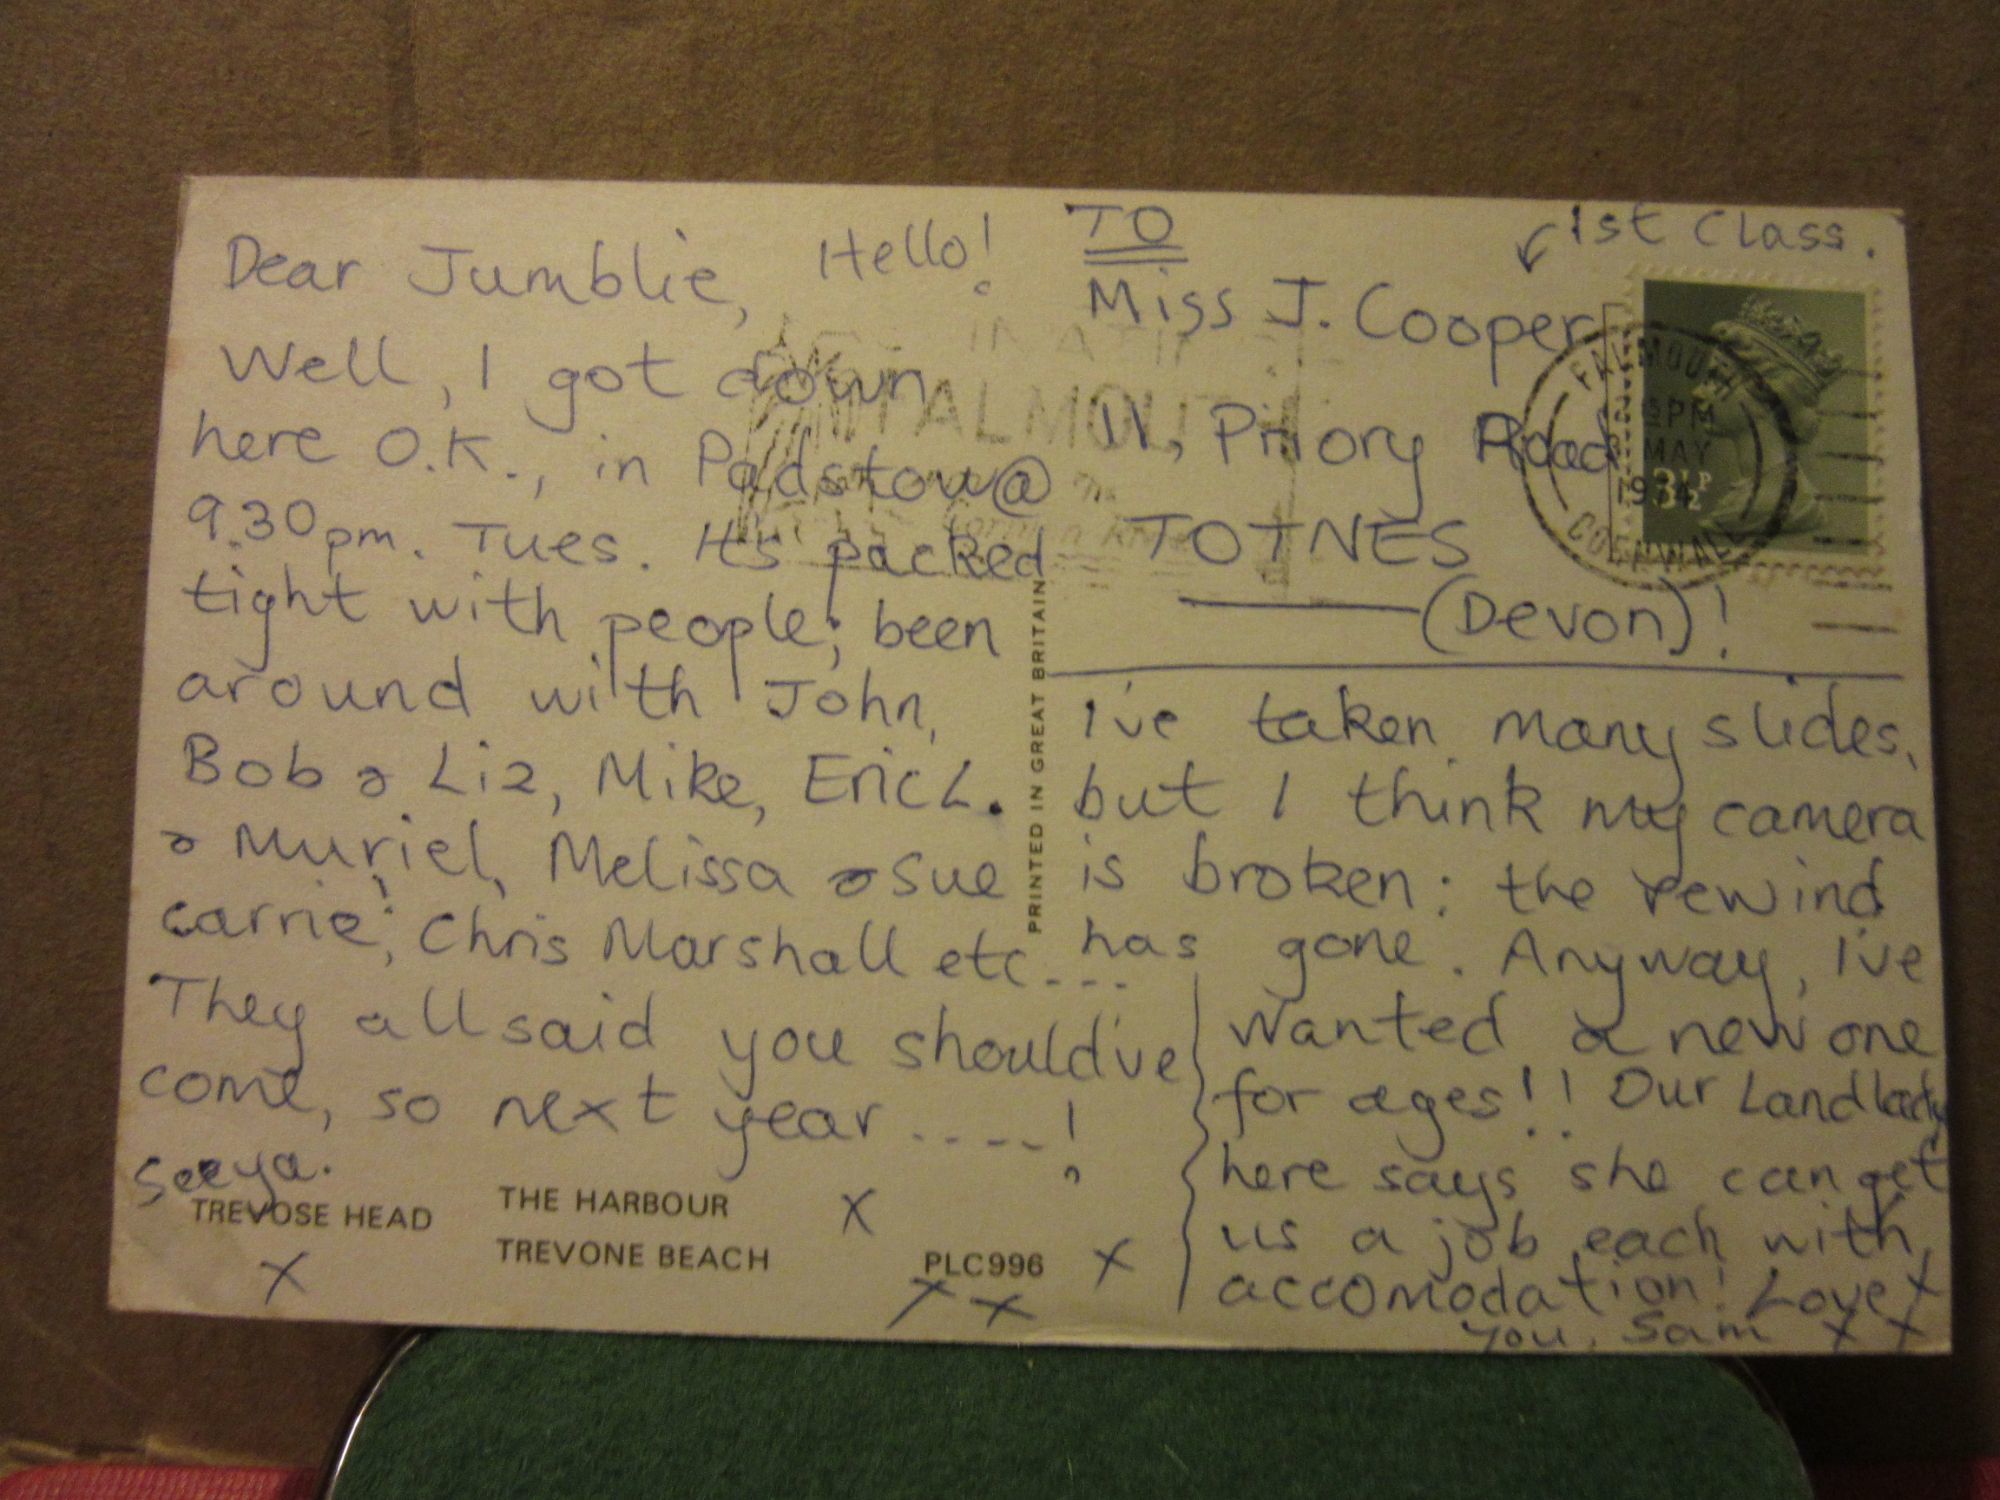 Dear Jumblie, Hello!
Well, I got down
here O.K., in Padstow @
9.30pm. Tues. It's packed
tight with people; been
around with John,
Bob & Liz, Mike, Eric L.
& Muriel, Melissa & Sue
Carrie, Chris Marshall etc....
They all said you should've
come, so next year ....!
See ya.
TREVOSE HEAD
THE HARBOUR
TREVONE BEACH
PLC996
x x x x x
PRINTED IN GREAT BRITAIN
1st Class.
TO
Miss J. Cooper
11, Priory Road
TOTNES
(Devon)!
FALMOUTH
PM
MAY
CORNWALL
3½P
FALMOUTH
I've taken many slides,
but I think my camera
is broken: the rewind
has gone. Anyway, I've
wanted a new one
for ages!! Our Landlady
here says she can get
us a job each with
accomodation! Love x
you, Sam x x